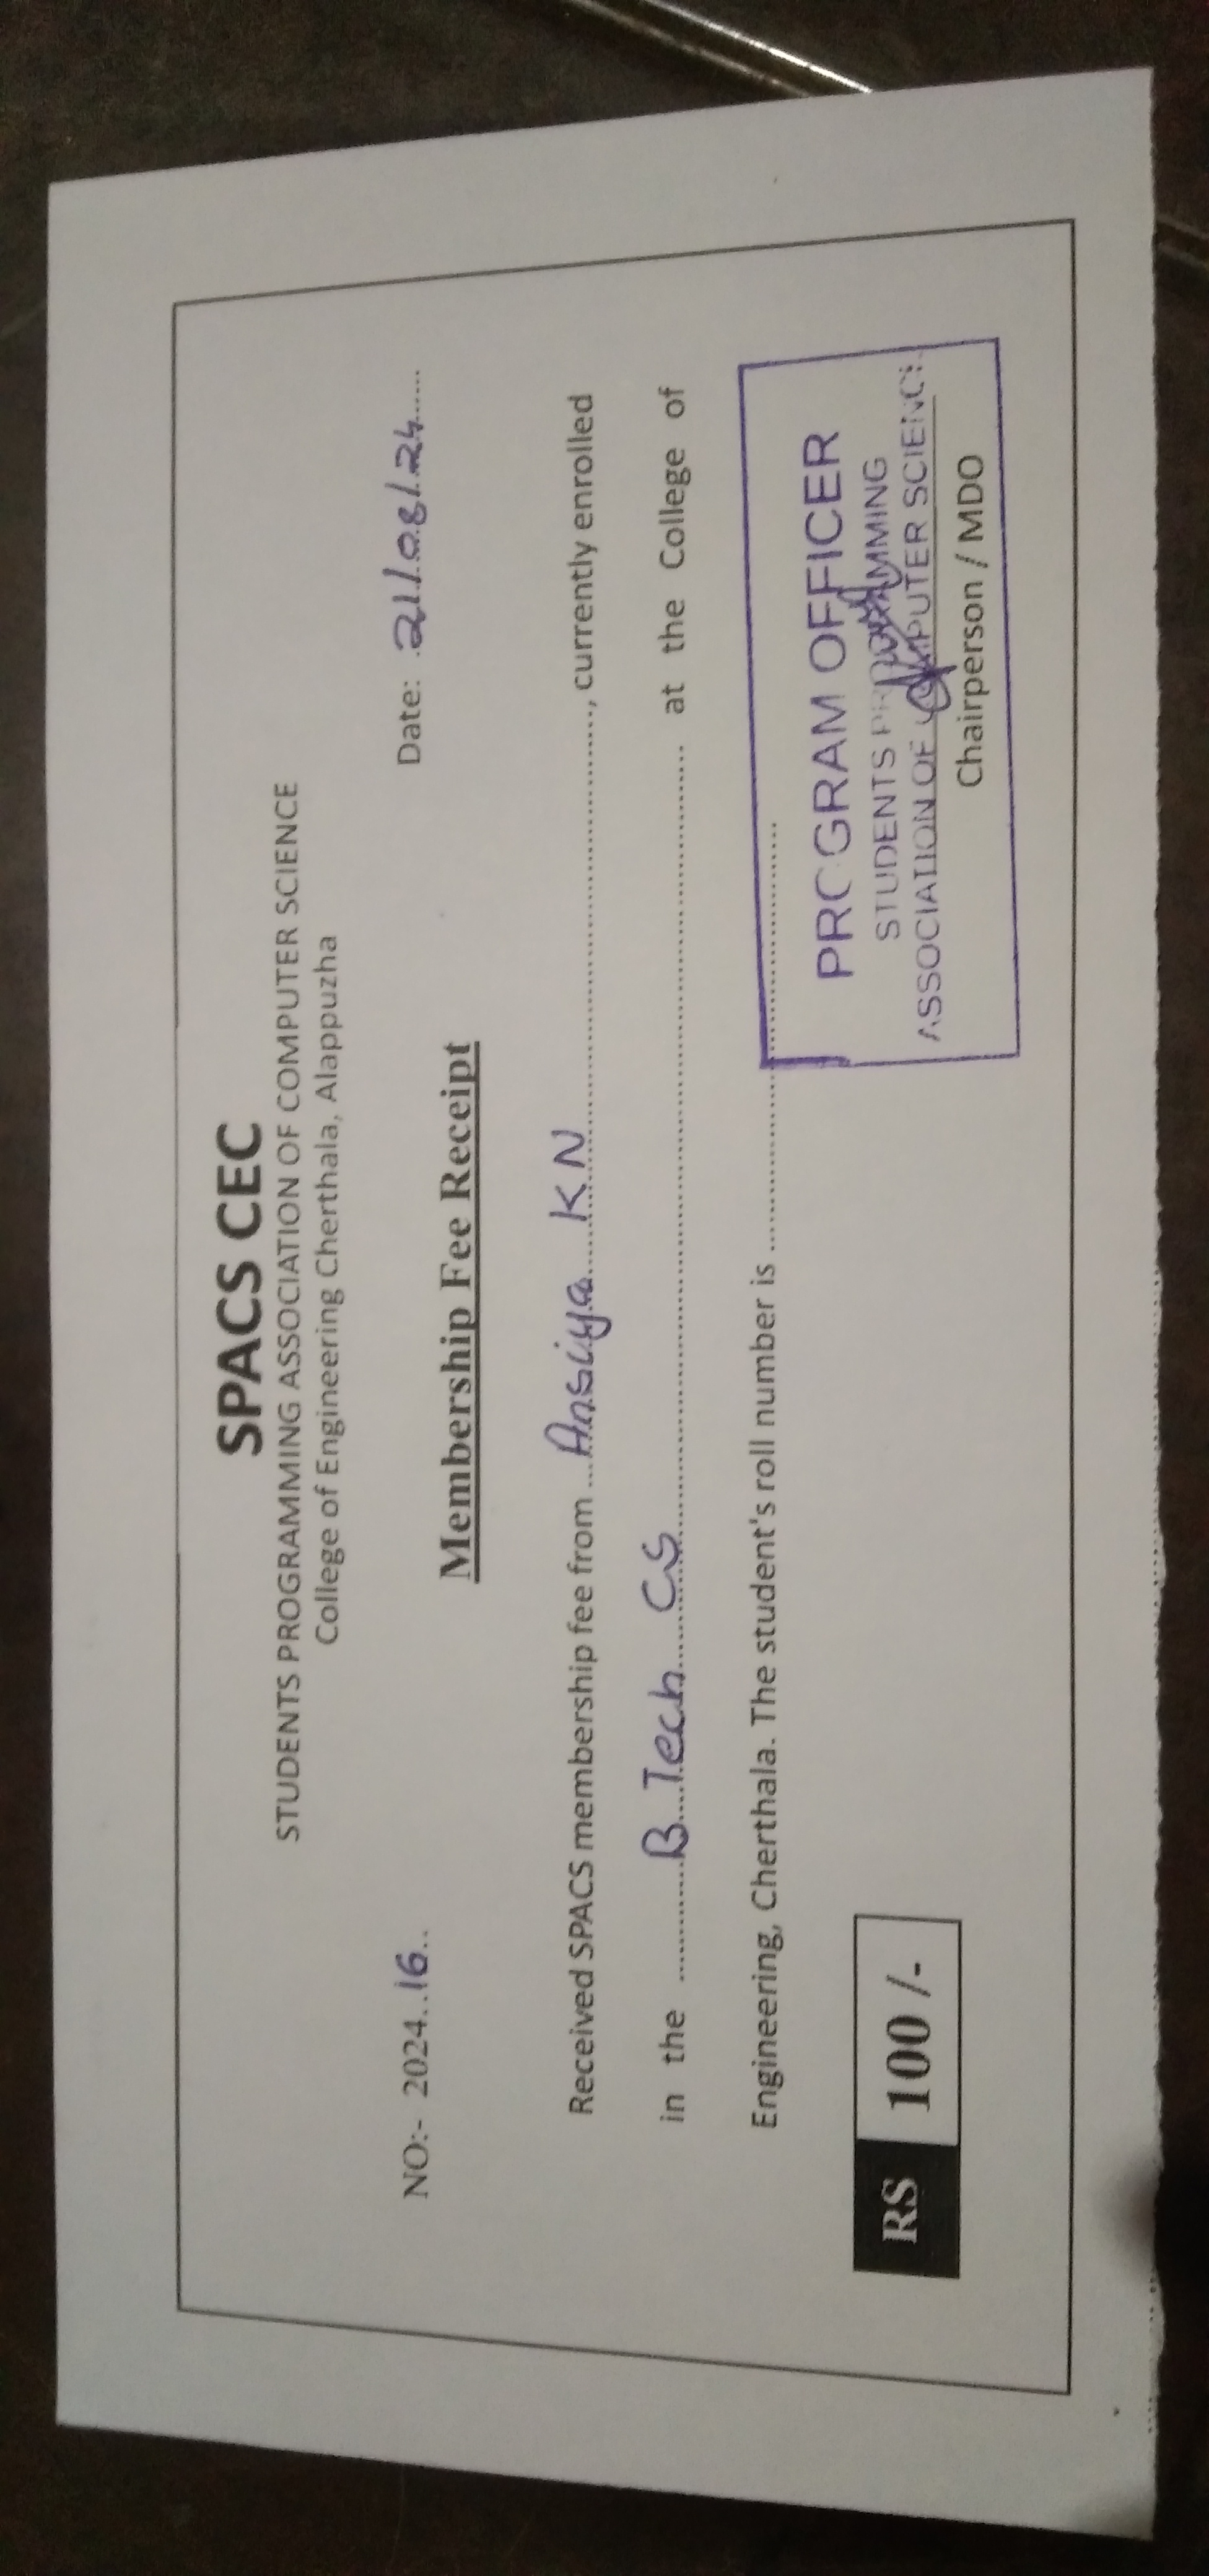 SPACS CEC
STUDENTS PROGRAMMING ASSOCIATION OF COMPUTER SCIENCE
College of Engineering Cherthala, Alappuzha
NO:- 2024..16.. Date: 21/08/24
Membership Fee Receipt
Received SPACS membership fee from Ansiya K N, currently enrolled
in the B Tech CS at the College of
Engineering, Cherthala. The student's roll number is
PROGRAM OFFICER
STUDENTS PROGRAMMING
ASSOCIATION OF COMPUTER SCIENCE
RS 100 /-
Chairperson / MDO